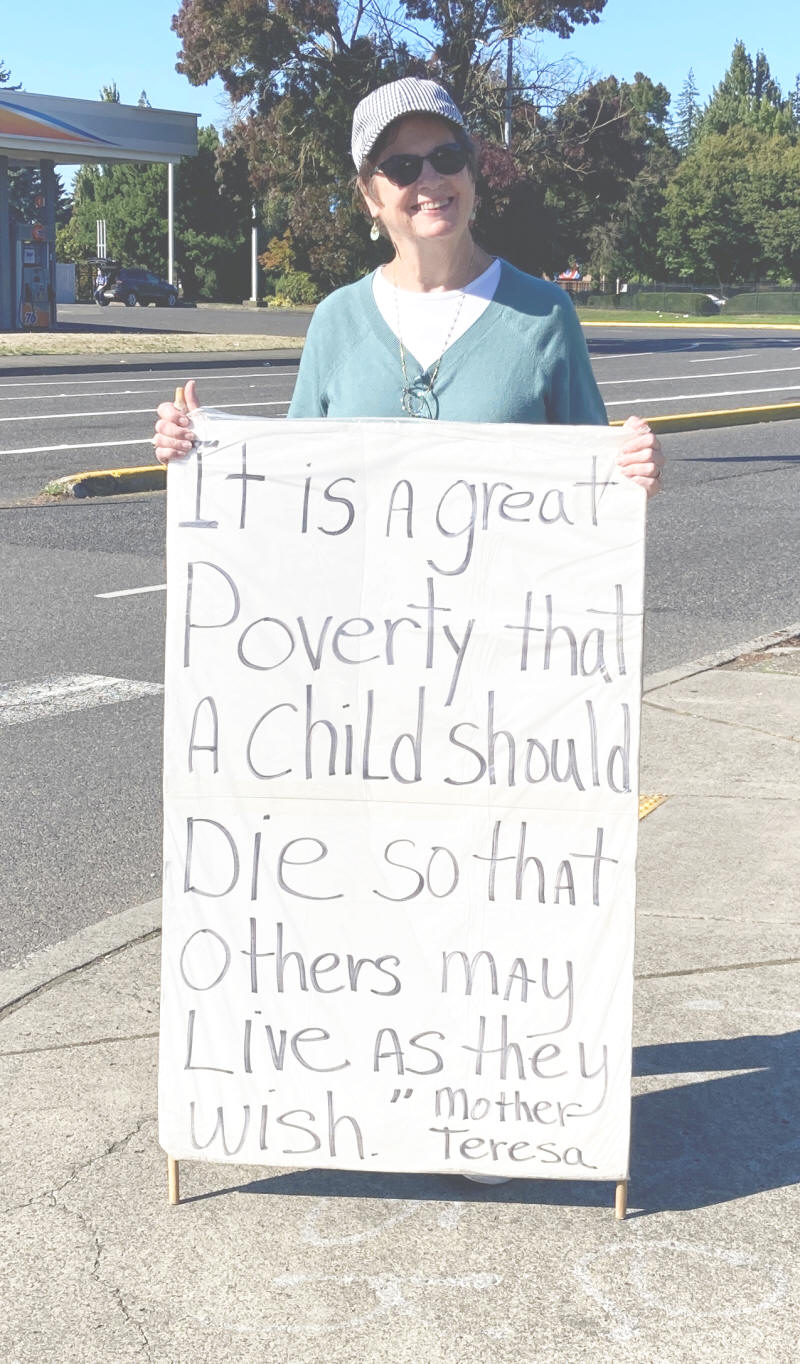 It is A great
Poverty that
A Child should
Die so that
others may
Live as they
wish." Mother
Teresa
76